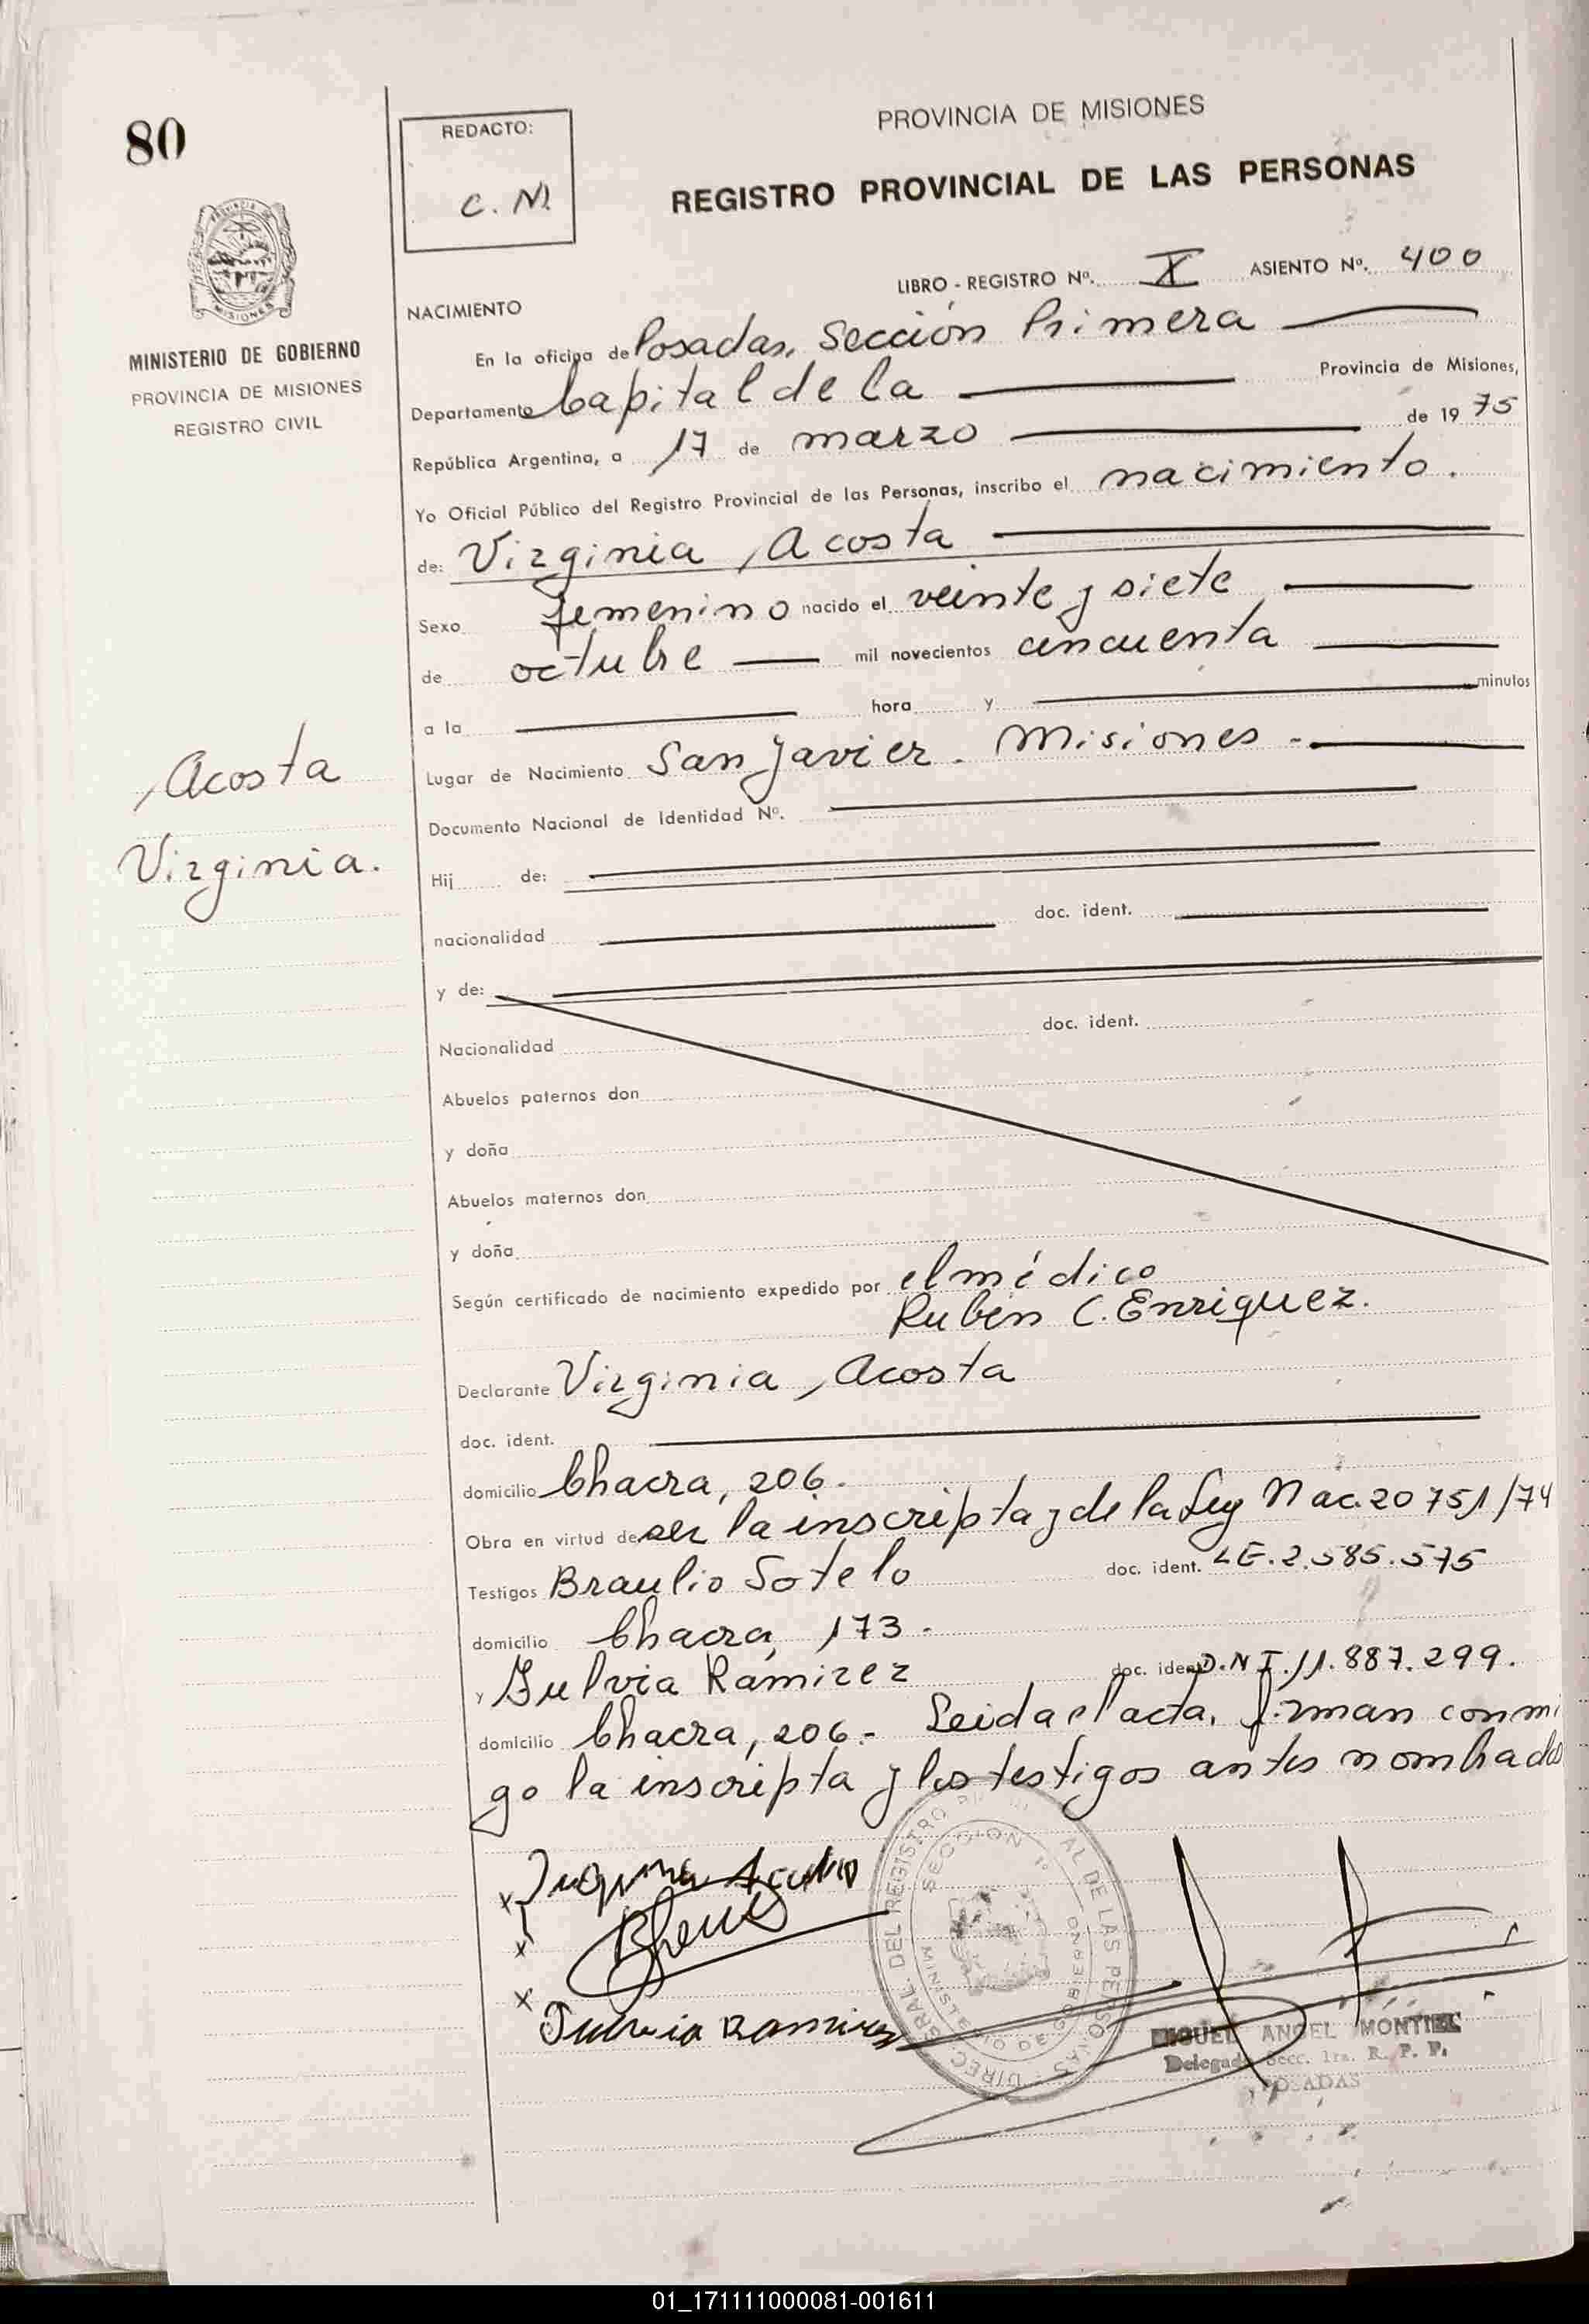 80
REDACTO:
C. M.
PROVINCIA DE MISIONES
REGISTRO PROVINCIAL DE LAS PERSONAS
PROVINCIA DE
MISIONES
MINISTERIO DE GOBIERNO
PROVINCIA DE MISIONES
REGISTRO CIVIL
LIBRO - REGISTRO Nº. X ASIENTO Nº. 400
NACIMIENTO
En la oficina de Posadas, Sección Primera
Departamento Capital de la Provincia de Misiones,
República Argentina, a 17 de marzo de 1975
Yo Oficial Público del Registro Provincial de las Personas, inscribo el nacimiento.
de: Virginia Acosta
Sexo femenino nacido el veinte y siete
de octubre mil novecientos cincuenta
a la hora y minutos
Acosta
Virginia.
Lugar de Nacimiento San Javier. Misiones -
Documento Nacional de Identidad Nº.
Hij de:
nacionalidad doc. ident.
y de:
Nacionalidad doc. ident.
Abuelos paternos don
y doña
Abuelos maternos don
y doña
Según certificado de nacimiento expedido por el médico
Rubén C. Enriquez.
Declarante Virginia Acosta
doc. ident.
domicilio Chacra, 206.
Obra en virtud de ser la inscripta y de la Ley Nac. 20751/74
Testigos Braulio Sotelo doc. ident. LE. 2.585.575
domicilio Chacra, 173.
y Fulvia Ramirez doc. ident. D.N.I. 11.887.299.
domicilio Chacra, 206.- Leida el acta, firman conmi
go la inscripta y los testigos antes nombrados
DIREC GRAL. DEL REGISTRO AL DE LAS PERSONAS
SECCION 1º
MINISTERIO DE GOBIERNO
x
x
x Ramirez
MIGUEL ANGEL MONTIEL
Delegado Secc. 1ra. R. P. P.
POSADAS
01_171111000081-001611